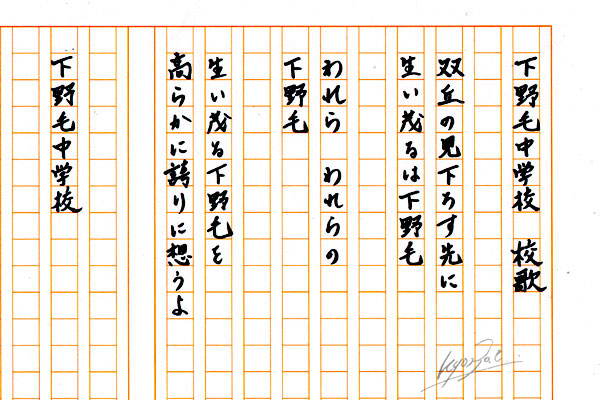 下野毛中学校　校歌
双丘の見下ろす先に
生い茂るは下野毛
われら　われらの
下野毛
生い茂る下野毛を
高らかに誇りに想うよ
下野毛中学校